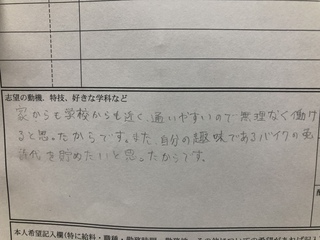 志望の動機、特技、好きな学科など
家からも学校からも近く、通いやすいので無理なく働け
ると思ったからです。また、自分の趣味であるバイクの免
許代を貯めたいと思ったからです。
本人希望記入欄(特に給料・職種・勤務時間・勤務地・その他についての希望があれば記入